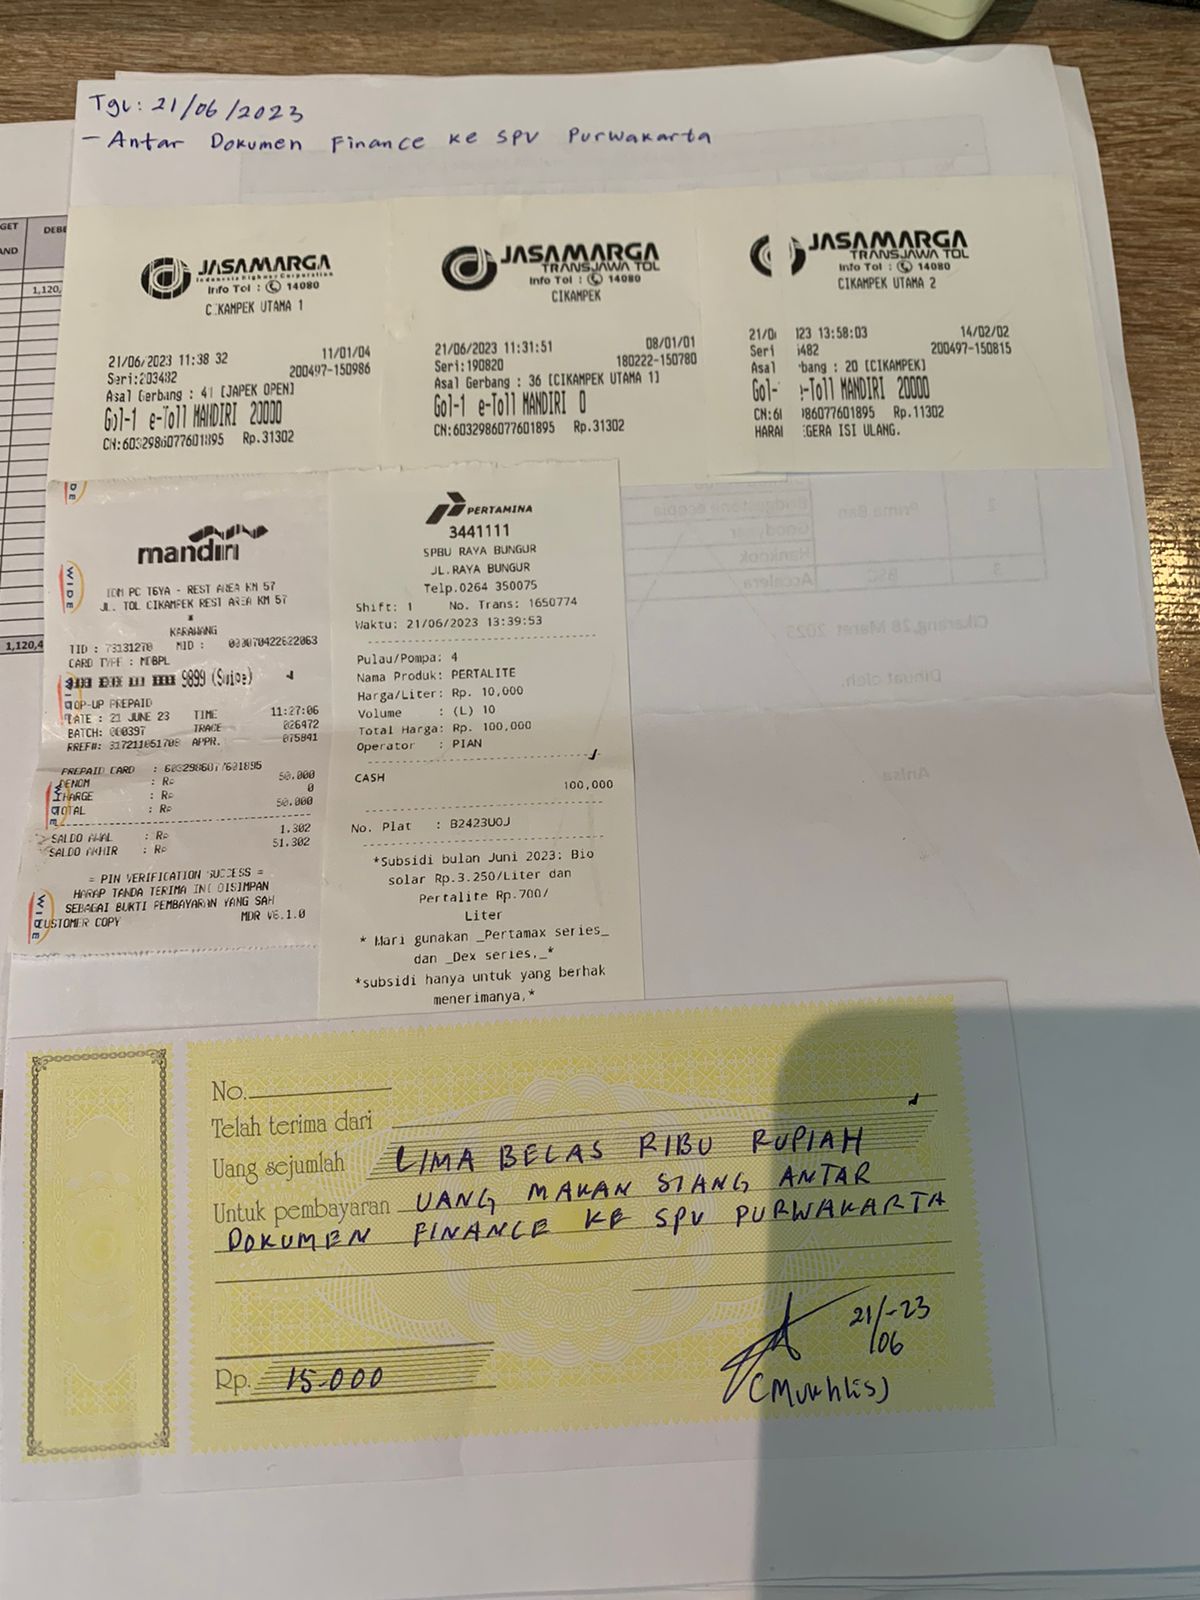 Tgl: 21/06/2023
- Antar Dokumen Finance ke SPV Purwakarta
GET
AND
DEBE
1,120,
1,120,4
JASAMARGA
Indonesia Highway Corporation
Info Tol : 14080
CIKAMPEK UTAMA 1
21/06/2023 11:38 32
11/01/04
Seri:203482
200497-150986
Asal Gerbang : 41 [JAPEK OPEN]
Gol-1 e-Toll MANDIRI 20000
CN:6032986077601895 Rp.31302
JASAMARGA
TRANSJAWA TOL
Info Tol : 14080
CIKAMPEK
21/06/2023 11:31:51
08/01/01
Seri:190820
180222-150780
Asal Gerbang : 36 [CIKAMPEK UTAMA 1]
Gol-1 e-Toll MANDIRI 0
CN:6032986077601895 Rp.31302
JASAMARGA
TRANSJAWA TOL
Info Tol : 14080
CIKAMPEK UTAMA 2
21/0 123 13:58:03
14/02/02
Seri 482
200497-150815
Asal bang : 20 [CIKAMPEK]
Gol- e-Toll MANDIRI 20000
CN:6 986077601895 Rp.11302
HARA GERA ISI ULANG.
WIDE
mandiri
IDM PC T6YA - REST AREA KM 57
JL. TOL CIKAMPEK REST AREA KM 57
KARAWANG
TID : 73131270 MID : 000070422622063
CARD TYPE : MDBPL
9899 (Swipe)
TOP-UP PREPAID
DATE : 21 JUNE 23 TIME 11:27:06
BATCH: 000397 TRACE 026472
RREF#: 317211051708 APPR. 075841
PREPAID CARD : 6032986077601895
DENOM : Rp 50.000
CHARGE : Rp 0
TOTAL : Rp 50.000
SALDO AWAL : Rp 1.302
SALDO AKHIR : Rp 51.302
= PIN VERIFICATION SUCCESS =
HARAP TANDA TERIMA INI DISIMPAN
SEBAGAI BUKTI PEMBAYARAN YANG SAH
CUSTOMER COPY MDR V6.1.0
PERTAMINA
3441111
SPBU RAYA BUNGUR
JL.RAYA BUNGUR
Telp.0264 350075
Shift: 1 No. Trans: 1650774
Waktu: 21/06/2023 13:39:53
Pulau/Pompa: 4
Nama Produk: PERTALITE
Harga/Liter: Rp. 10,000
Volume : (L) 10
Total Harga: Rp. 100,000
Operator : PIAN
CASH
100,000
No. Plat : B2423UOJ
*Subsidi bulan Juni 2023: Bio
solar Rp.3.250/Liter dan
Pertalite Rp.700/
Liter
* Mari gunakan _Pertamax series_
dan _Dex series._*
*subsidi hanya untuk yang berhak
menerimanya.*
2
Prima Ban
Bridgestone ecopia
Goodyear
Hankook
3
BSC
Accelera
Cikarang,28 Maret 2025
Dibuat oleh.
Anisa
No.
Telah terima dari
Uang sejumlah LIMA BELAS RIBU RUPIAH
Untuk pembayaran UANG MAKAN SIANG ANTAR
DOKUMEN FINANCE KE SPV PURWAKARTA
21/-23
/06
Rp. 15.000
(Mukhlis)